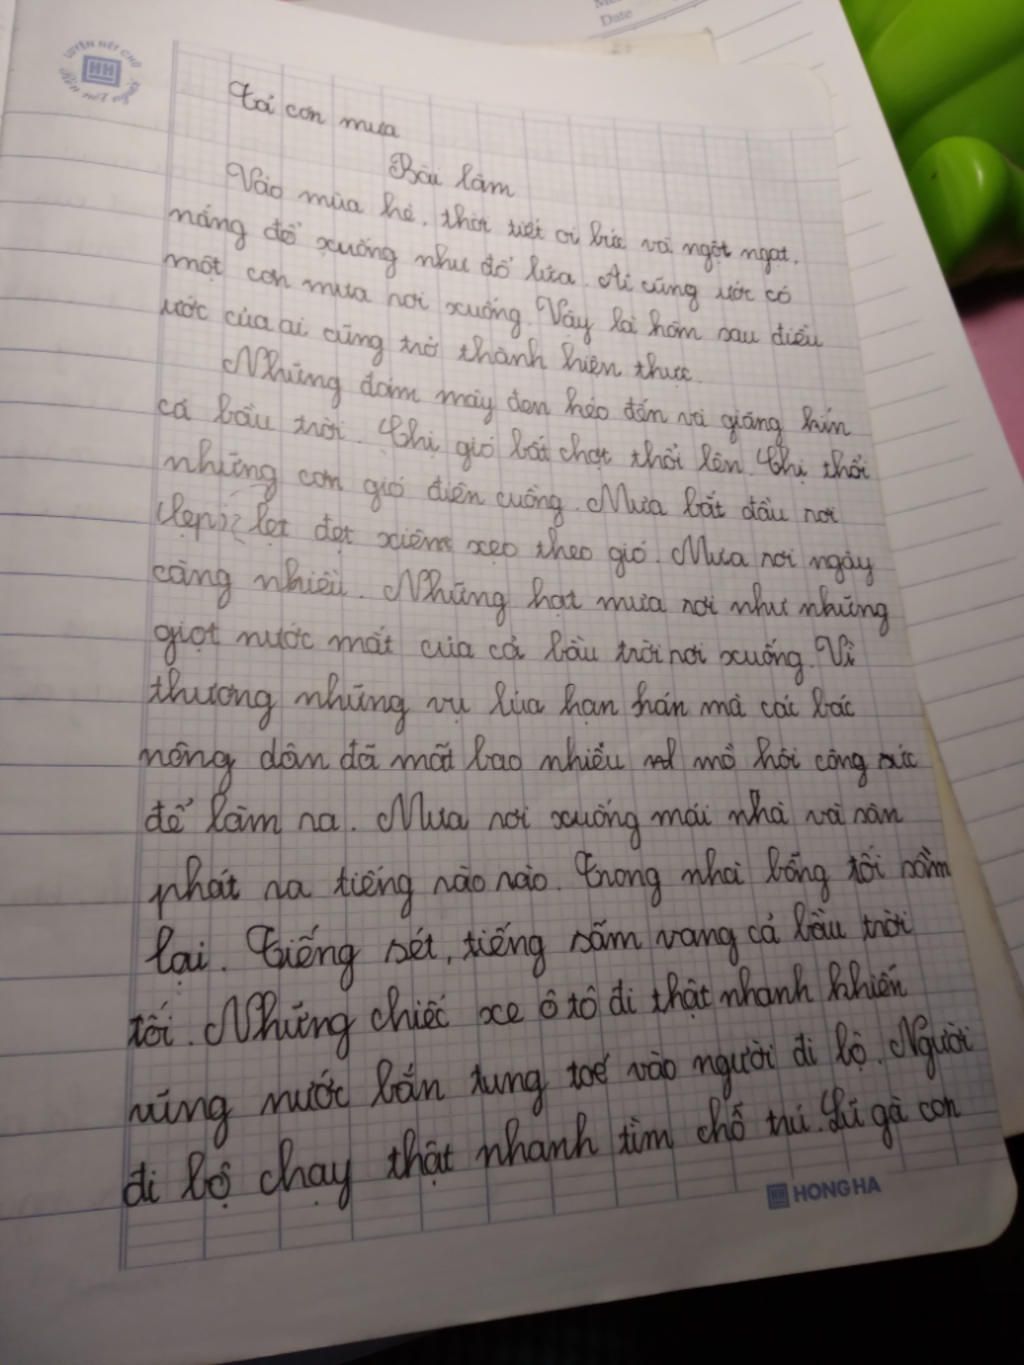 Date
LUYỆN NÉT CHỮ
HH
Tả cơn mưa
Bài làm
Vào mùa hè, thời tiết oi bức và ngột ngạt,
nắng đổ xuống như đổ lửa. Ai cũng ước có
một cơn mưa rơi xuống. Vậy là hôm sau điều
ước của ai cũng trở thành hiện thực.
Những đám mây đen kéo đến và giăng kín
cả bầu trời. Chị gió bất chợt thổi lên. Chị thổi
những cơn gió điên cuồng. Mưa bắt đầu rơi
lẹt đẹt xiêm xẹo theo gió. Mưa rơi ngày
càng nhiều. Những hạt mưa rơi như những
giọt nước mắt của cả bầu trời rơi xuống. Vì
thương những vụ lúa hạn hán mà các bác
nông dân đã mất bao nhiêu mồ hôi công sức
để làm ra. Mưa rơi xuống mái nhà và sân
phát ra tiếng rào rào. Trong nhà bỗng tối sầm
lại. Tiếng sét, tiếng sấm vang cả bầu trời
tối. Những chiếc xe ô tô đi thật nhanh khiến
vũng nước bắn tung toé vào người đi bộ. Người
đi bộ chạy thật nhanh tìm chỗ trú. Lũ gà con
HH HONG HA